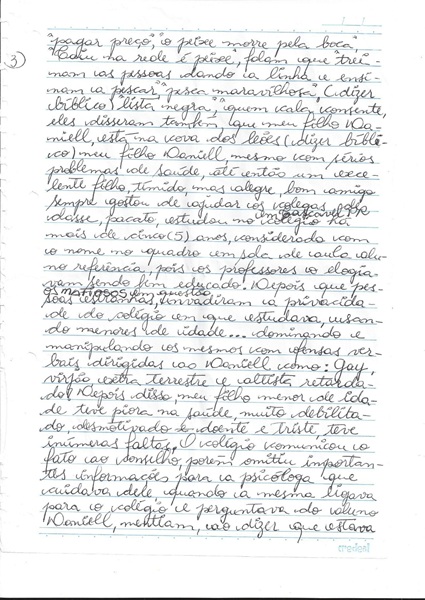 3)
"pagar preço", "o peixe morre pela boca",
"Caiu na rede é peixe", falam que "trei-
nam as pessoas dando a linha e ensi-
nam a pescar, "pesca maravilhosa", (dizer
bíblico) "lista negra", "quem cala consente,
eles disseram também que meu filho Da-
niell, está na cova dos leões (dizer bíbli-
co) meu filho Daniell, mesmo com sérios
problemas de saúde, até então um exce-
lente filho, tímido, mas alegre, bom amigo
sempre gostou de ajudar os colegas de
classe, pacato, estudou no colégio há
em Cascavel PR
mais de cinco (5) anos, considerado com
o nome no quadro em sala de aula alu-
no referência, pois os professores o elogia-
vam sendo bem educado. Depois que pes-
os maticos em questão
soas estranhas, invadiram a privacida-
de do colégio em que estudava, usan-
do menores de idade... dominando e
manipulando os mesmos com ofensas ver-
bais dirigidas ao Daniell como: Gay,
virjão, extra terrestre e altista retarda-
do! Depois disso, meu filho menor de ida-
de teve piora na saúde, muito debilita-
do desmotivado e doente e triste teve
inúmeras faltas, O colégio comunicou o
fato ao conselho, porém omitiu importan-
tes informações para a psicóloga que
cuidava dele, quando a mesma ligava
para o colégio e perguntava do aluno
Daniell, mentiam, ao dizer que estava
credeal